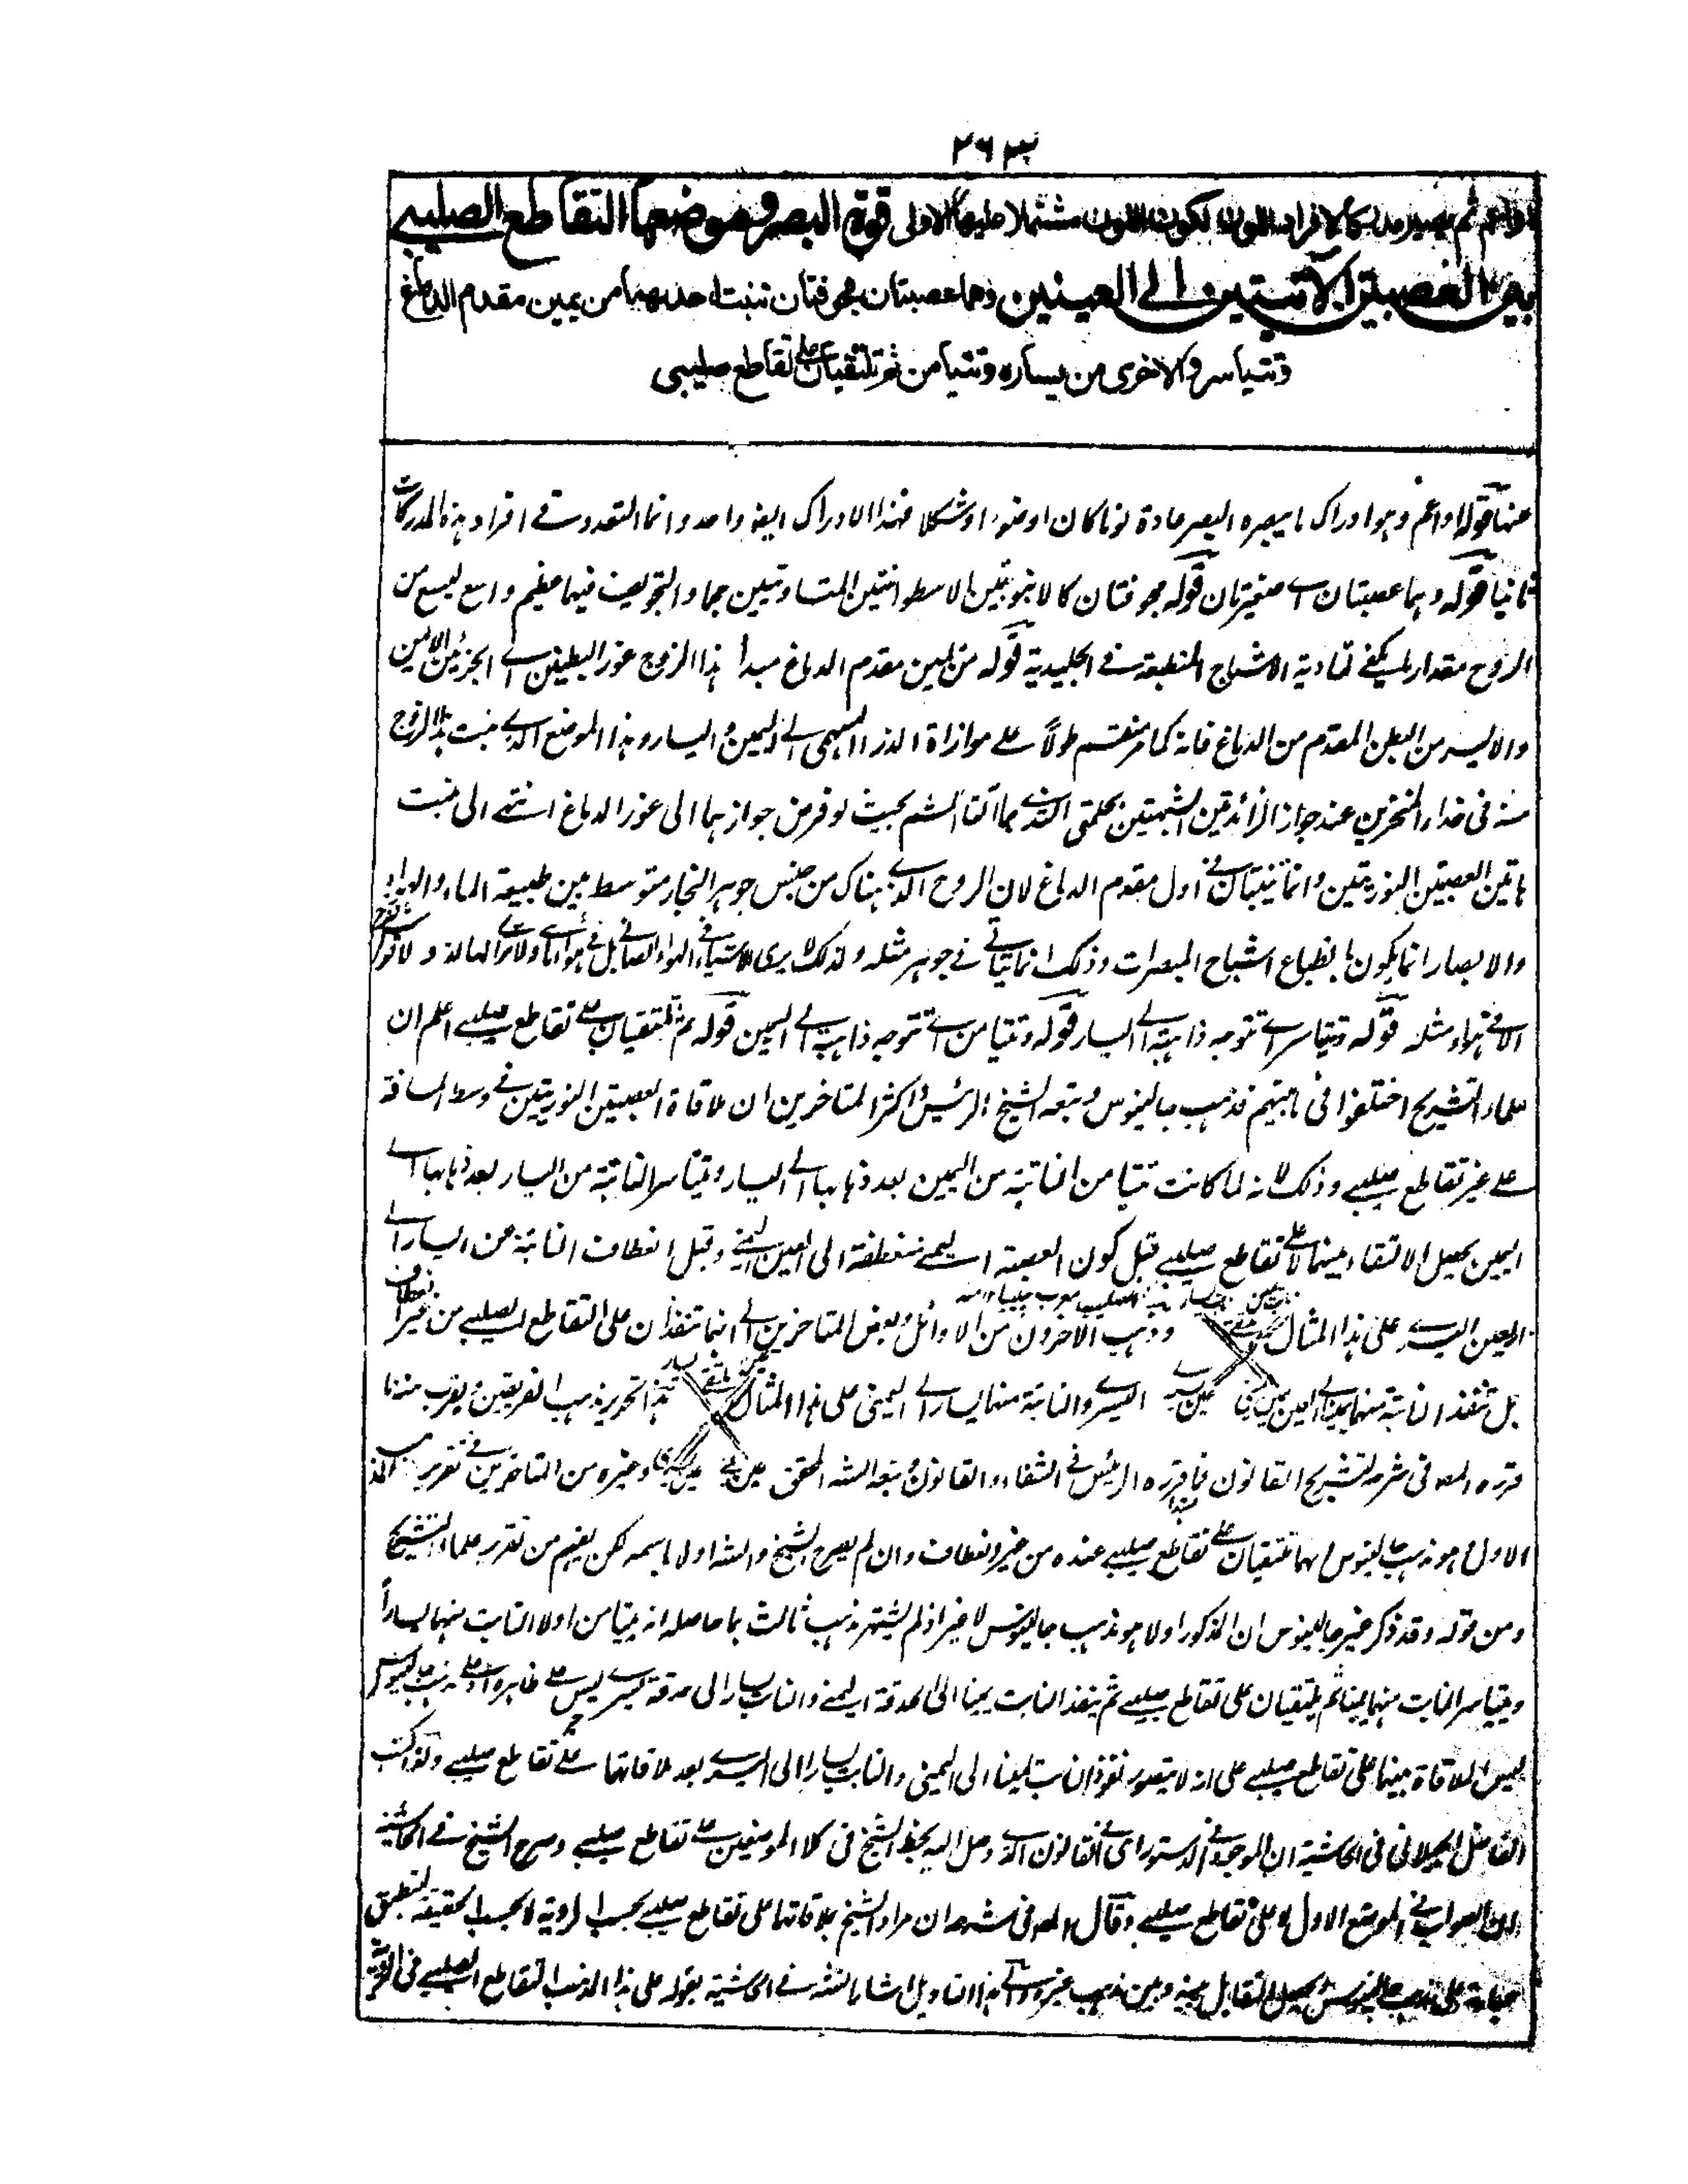 ٢٦٣
واعم ثم يصير مدركا لافراد اللون لكون اللون مشتملا عليها الاولى قوة البصر وموضعها التقاطع الصليبى
بين العصبتين الآتيتين الى العينين وهما عصبتان مجوفتان تنبت احدهما من يمين مقدم الدماغ
وتتياسر والاخرى من يساره وتتيامن ثم تلتقيان على تقاطع صليبى
عنها قوله اواعم وهو ادراك ما يبصره البصر عادة لونا كان او ضوءا او شكلا فهذا الادراك ايضا واحد وانما التعدد فى افراد هذه المدركات
ثانيا قوله وهما عصبتان اى صغيرتان قوله مجوفتان كالانبوبتين الاسطوانتين المتساويتين حجما والتجويف فيهما عظيم واسع ليسع من
الروح مقدار ما يكفى لتادية الاشباح المنطبعة فى الجليدية قوله من يمين مقدم الدماغ مبدأ هذا الزوج غور البطنين اى الجزئين الايمن
والايسر من البطن المقدم من الدماغ فانه كما مر منقسم طولا على موازاة الدرز السهمى الى اليمين واليسار وهذا الموضع الذى ينبت هذا الزوج
منه فى حذاء المنخرين عند جواز الزائدتين الشبيهتين بحلمتى الثدى هما آلتا الشم بحيث لو فرض جوازهما الى غور الدماغ انتهى الى منبت
هاتين العصبتين النوريتين وانما تنبتان فى اول مقدم الدماغ لان الروح الذى هناك من جنس جوهر البخار متوسط بين طبيعة الماء والهواء
والابصار انما يكون بانطباع اشباح المبصرات وذلك انما يتاتى فى جوهر مثله ولذلك لا يرى الاشياء فى الهواء الصافى بل فى هواء
الا فى هواء مثله قوله وتتياسر اى تتوجه ذاهبة الى اليسار قوله وتتيامن اى تتوجه ذاهبة الى اليمين قوله ثم تلتقيان على تقاطع صليبى اعلم ان
علماء التشريح اختلفوا فى فذهب جالينوس وتبعه الشيخ الرئيس واكثر المتاخرين ان ملاقاة العصبتين النوريتين فى وسط المسافة
على غير تقاطع صليبى وذلك لانه لما كانت تتيامن النابتة من اليمين بعد ذهابها الى اليسار وتتياسر النابتة من اليسار بعد ذهابها الى
اليمين يحصل الالتقاء بينهما لا على تقاطع صليبى قبل كون العصبة اليمنى منعطفة الى العين اليمنى وقبل انعطاف النابتة من اليسار الى
العين اليسرى على هذا المثال وذهب الاخرون من الاوائل وبعض المتاخرين الى انهما تنفذان على التقاطع الصليبى من غير انعطاف
بل تنفذ النابتة منهما يمينا الى العين اليسرى والنابتة منها يسارا الى اليمنى على هذا المثال هذا تحرير مذهب الفريقين ويقرب منه ما
قرره المصنف فى شرحه لتشريح القانون فما قرره الرئيس فى الشفاء والقانون وتبعه المحقق وغيره من المتاخرين فى تقرير
الاول هو مذهب جالينوس انهما تلتقيان على تقاطع صليبى عنده من غير انعطاف وان لم يصرح الشيخ اولا باسمه لكن يفهم من تقرير علماء التشريح
ومن قوله وقد ذكر غير جالينوس ان المذكور اولا هو مذهب جالينوس لا غير اذ لم يشتهر مذهب ثالث بما حاصله انه يتيامن اولا النابت منهما يسارا
ويتياسر النابت منهما يمينا ثم يلتقيان على تقاطع صليبى ثم ينفذ النابت يمينا الى الحدقة اليمنى والنابت يسارا الى حدقة اليسرى ليس على ظاهره مذهب جالينوس
ليس الملاقاة بينهما على تقاطع صليبى على انه لا يتصور نفوذ النابت يمينا الى اليمنى والنابت يسارا الى اليسرى بعد ملاقاتهما على تقاطع صليبى ولذا كتب
الفاضل الجيلانى فى الحاشية ان الموجود فى الدستور اى فى القانون الذى وصل اليه بخط الشيخ فى كلا الموضعين على تقاطع صليبى وصرح الشيخ فى الحاشية
ان الصواب فى الموضع الاول لا على تقاطع صليبى وقال المصنف فى شرحه ان مراد الشيخ بملاقاتهما على تقاطع صليبى بحسب الرؤية لا بحسب الحقيقة لينطبق
على مذهب جالينوس ويحصل التقابل بينه وبين مذهب غيره هذا التاويل اشار اليه فى الحاشية بقوله على هذا المذهب التقاطع الصليبى فى